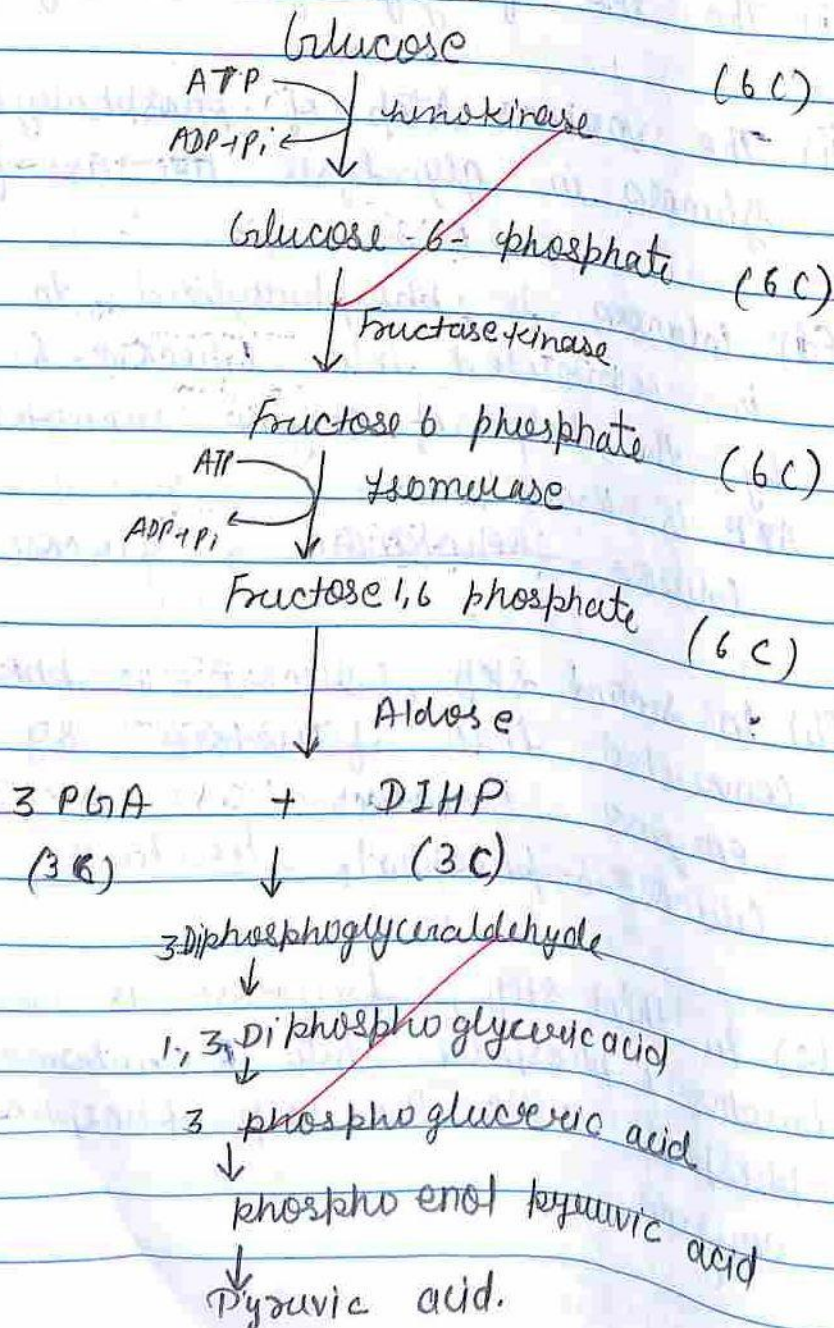 Glucose
(6C)
ATP
ADP+Pi
Glucose-6-phosphate
(6C)
Fructase kinase
Fructose 6 phosphate
(6C)
ATP
Isomerase
ADP+Pi
Fructose 1,6 phosphate
(6C)
Aldose
3 PGA + DIHP
(3C) (3C)
3 Diphosphoglyceraldehyde
1, 3, Diphospho glyceric acid
3 phospho gluceric acid
phospho enol pyruvic acid
Pyruvic acid.